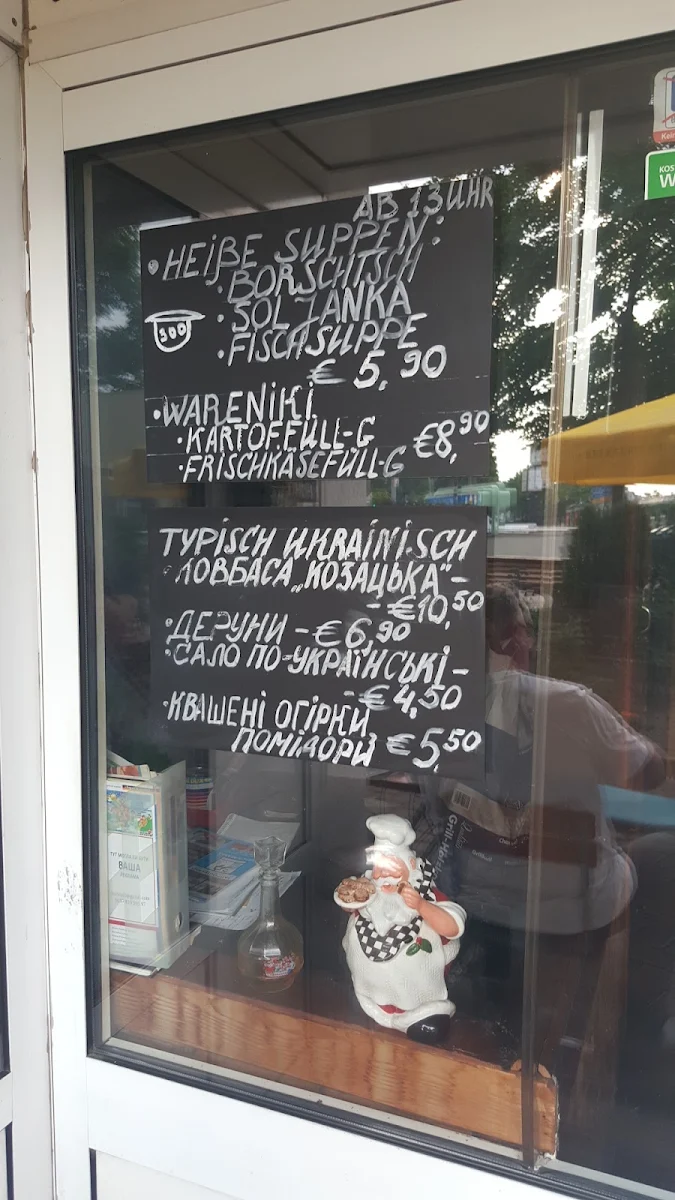 AB 13 UHR
• HEIßE SUPPEN:
• BORSCHTSCH
• SOLJANKA
500
• FISCHSUPPE
€ 5,90
• WARENIKI
• KARTOFFÜLL-G €8,90
• FRISCHKÄSEFÜLL-G
TYPISCH UKRAINISCH
• КОВБАСА „КОЗАЦЬКА" –
- €10,50
• ДЕРУНИ - €6,90
• САЛО ПО-УКРАЇНСЬКІ –
- € 4,50
• КВАШЕНІ ОГІРКИ,
ПОМІДОРИ €5,50
ВАША
Grill-H